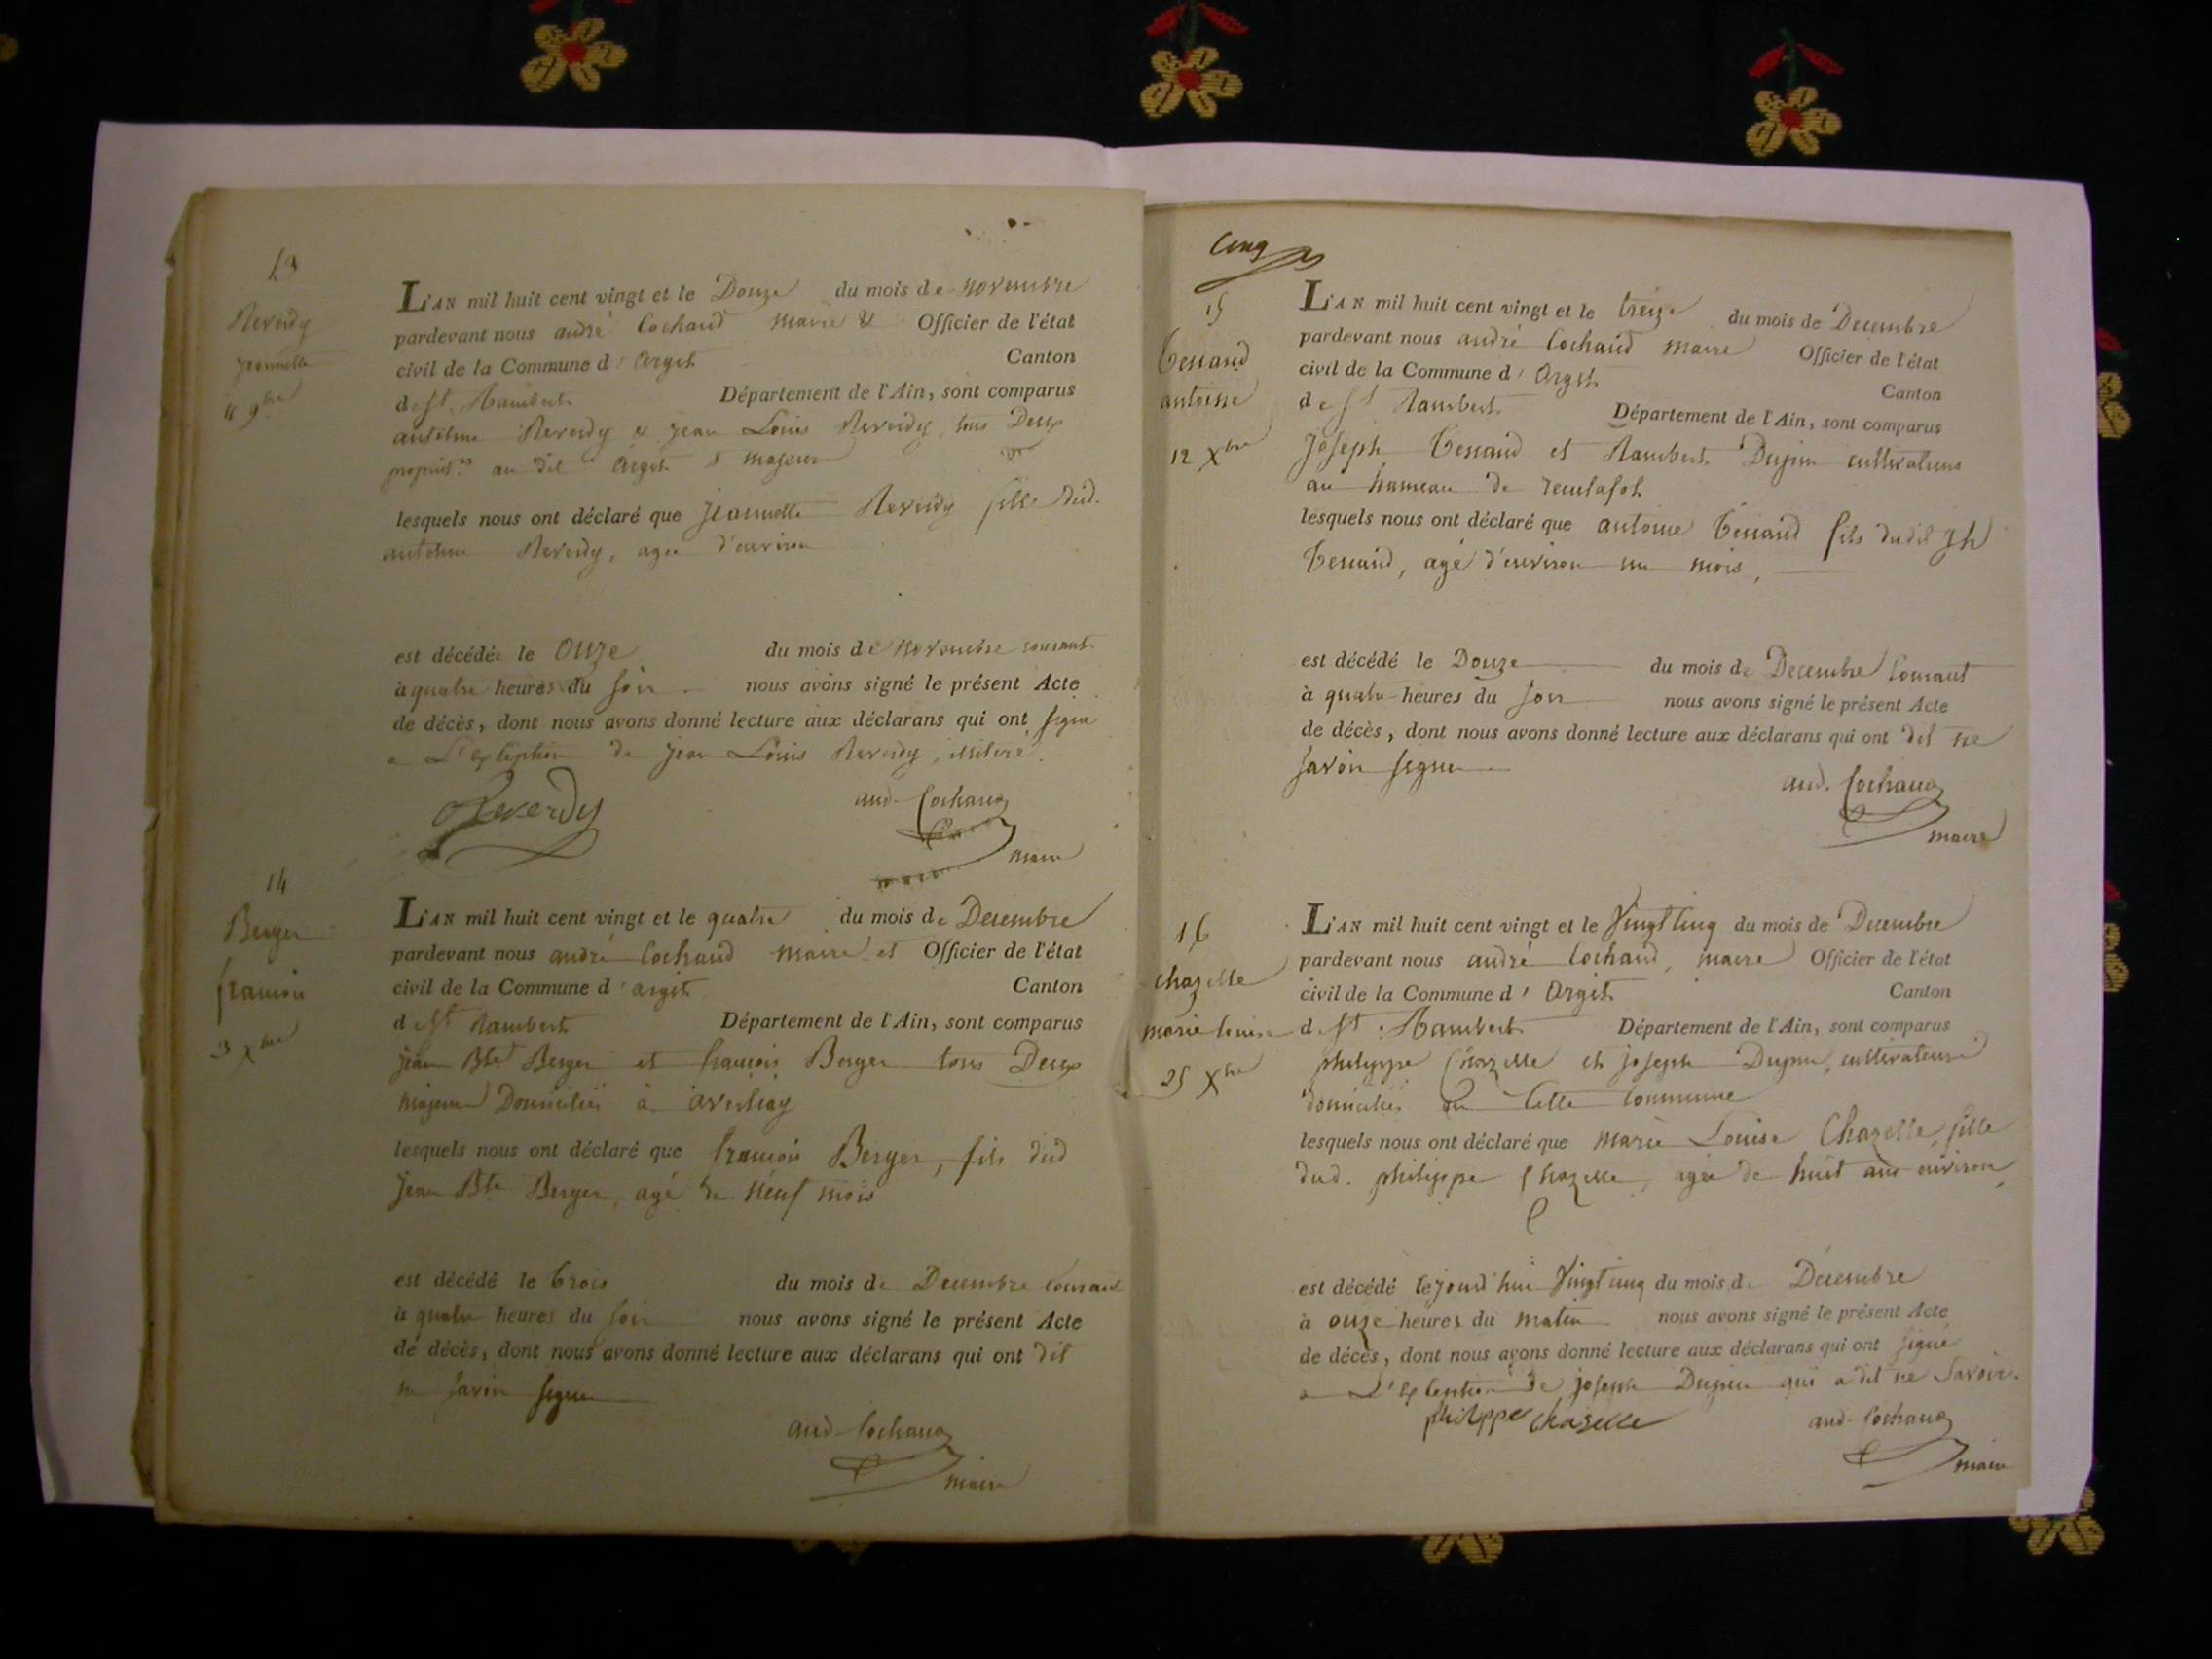 13
Reverdy
jeannette
11 9bre
L'AN mil huit cent vingt et le Douze du mois de novembre
pardevant nous andré Cochaud maire & Officier de l'état
civil de la Commune d' Argit Canton
de St. Rambert Département de l'Ain, sont comparus
antelme Reverdy & jean Louis Reverdy, tous Deux
propriet.res au dit Argit & majeurs
lesquels nous ont déclaré que jeannette Reverdy fille dud.
antelme Reverdy, agée d'environ
est décédée le Onze du mois de novembre courant
à quatre heures du soir nous avons signé le présent Acte
de décès, dont nous avons donné lecture aux déclarans qui ont signé
a L'exception de jean Louis Reverdy, illiteré.
Reverdy
and. Cochaud
maire
14
Berger
francois
3 Xbre
L'AN mil huit cent vingt et le quatre du mois de Decembre
pardevant nous andré Cochaud maire et Officier de l'état
civil de la Commune d' argit Canton
de St Rambert Département de l'Ain, sont comparus
jean Bte Berger et francois Berger tous Deux
majeurs Domiciliés à
lesquels nous ont déclaré que francois Berger, fils dud
jean Bte Berger, agé de neuf mois
est décédé le trois du mois de Decembre courant
à quatre heures du soir nous avons signé le présent Acte
de décès, dont nous avons donné lecture aux déclarans qui ont dit
ne savoir signer
and. Cochaud
maire
Cinq
15
Tenand
antoine
12 Xbre
L'AN mil huit cent vingt et le treize du mois de Decembre
pardevant nous andré Cochaud maire Officier de l'état
civil de la Commune d' Argit Canton
de St Rambert Département de l'Ain, sont comparus
Joseph Tenand et Rambert Dupin cultivateurs
au hameau de
lesquels nous ont déclaré que antoine Tenand fils dudit jh
Tenand, agé d'environ un mois,
est décédé le Douze du mois de Decembre Courant
à quatre heures du soir nous avons signé le présent Acte
de décès, dont nous avons donné lecture aux déclarans qui ont dit ne
savoir signer
and. Cochaud
maire
16
chazelle
marie louise
25 Xbre
L'AN mil huit cent vingt et le Vingt Cinq du mois de Decembre
pardevant nous andré Cochaud, maire Officier de l'état
civil de la Commune d' Argit Canton
de St. Rambert Département de l'Ain, sont comparus
philippe Chazelle et joseph Dupin, cultivateurs
domiciliés en Cette Commune
lesquels nous ont déclaré que marie Louise Chazelle, fille
dud. philippe Chazelle, agée de huit ans environ
est décédé cejourd'hui Vingt cinq du mois de Décembre
à onze heures du matin nous avons signé le présent Acte
de décès, dont nous avons donné lecture aux déclarans qui ont signé
a L'exception de joseph Dupin qui a dit ne Savoir.
philippe chazelle
and. Cochaud
maire